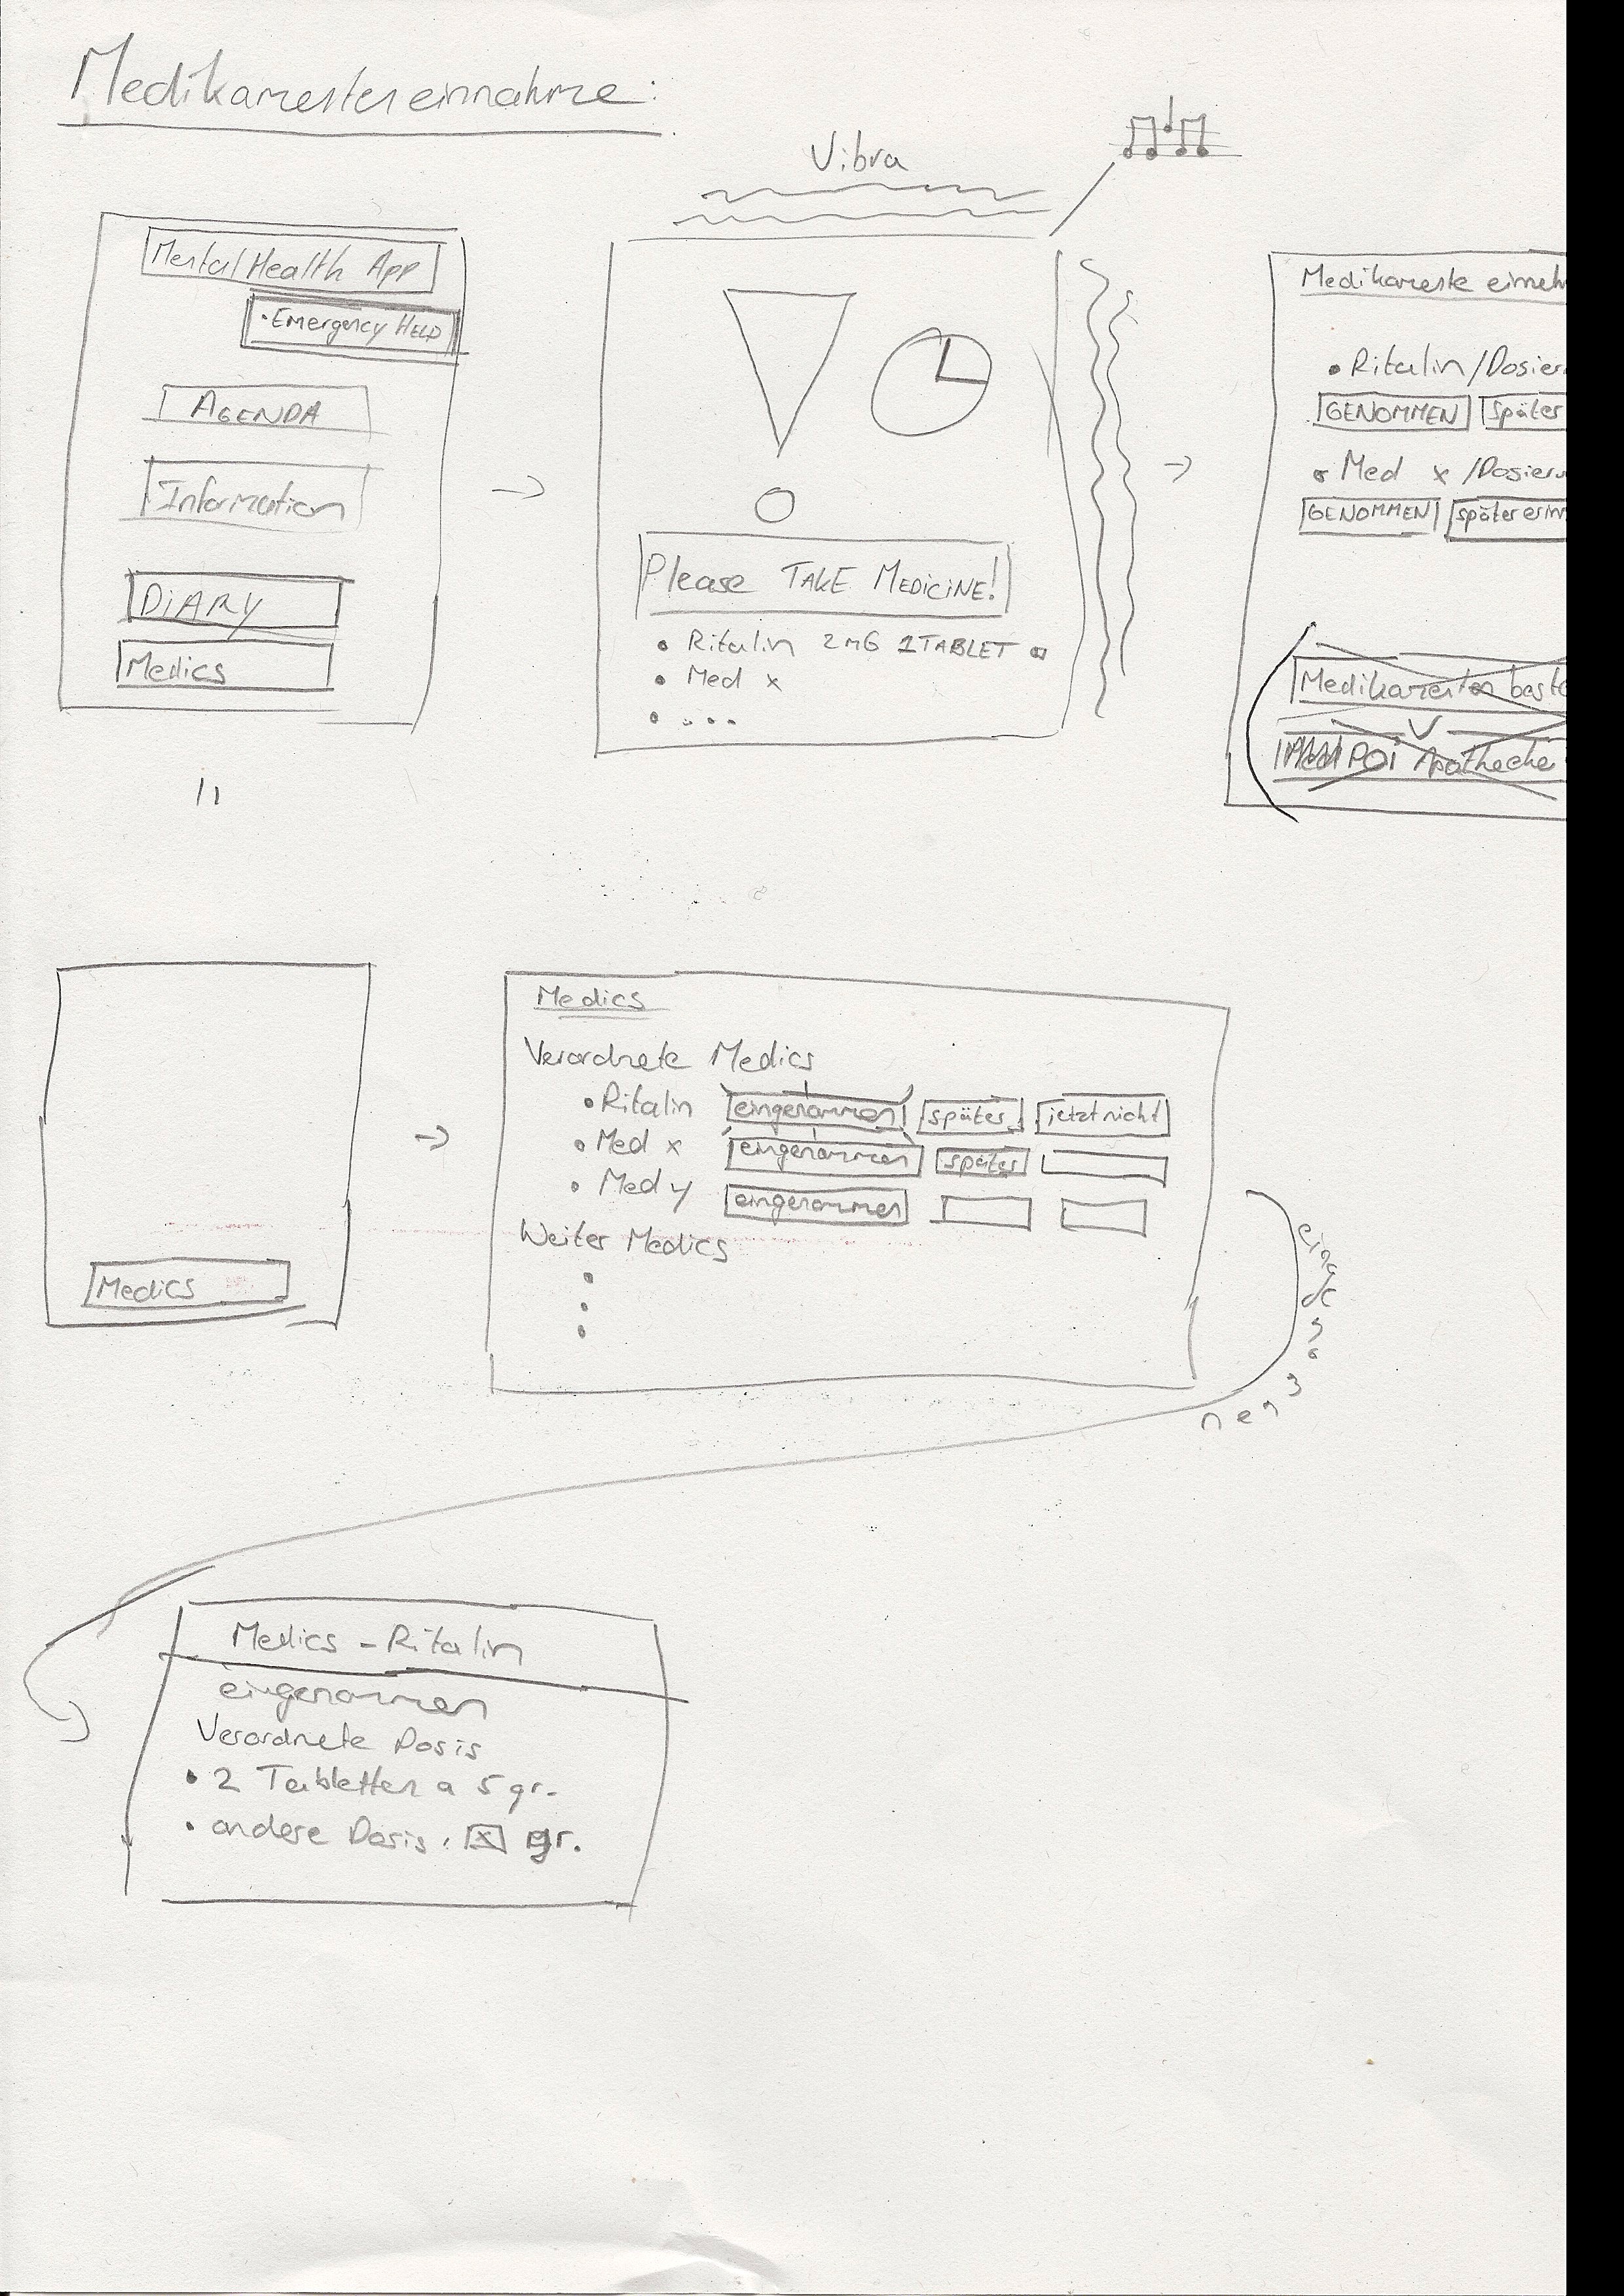 Medikamenteneinnahme:
Vibra
Mental Health App
• Emergency HELP
AGENDA
Information
DIARY
Medics
Please TAKE MEDICINE!
• Ritalin 2MG 1TABLET
• Med x
• ....
Medikamente einneh
• Ritalin / Dosier
GENOMMEN später
• Med x / Dosieru
GENOMMEN später erin
Medikamenten beste
POI Apotheke
Medics
Medics
Verordnete Medics
• Ritalin eingenommen später jetzt nicht
• Med x eingenommen später
• Med y eingenommen
Weiter Medics
eingenommen
Medics - Ritalin
eingenommen
Verordnete Dosis
• 2 Tabletten a 5 gr.
• andere Dosis: x gr.